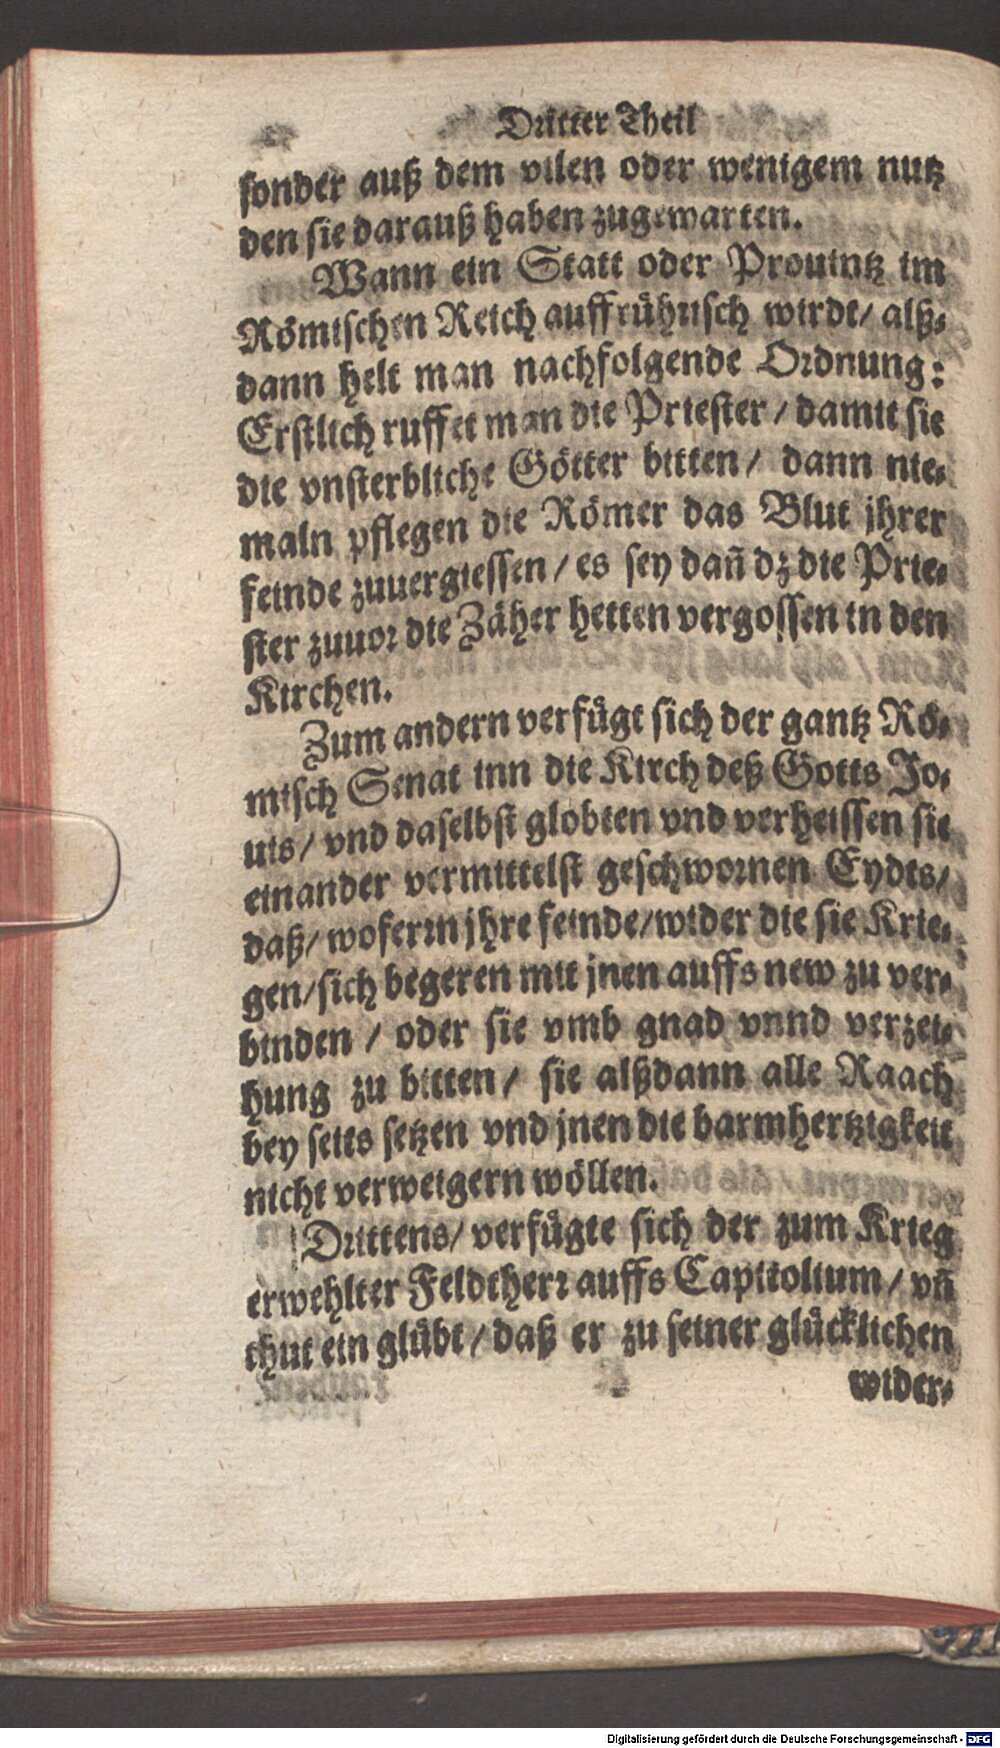 Dritter Theil
sonder auß dem vilen oder wenigem nutz
den sie darauß haben zugewarten.
Wann ein Statt oder Prouintz im
Römischen Reich auffrührisch wirdt/ alß-
dann helt man nachfolgende Ordnung:
Erstlich ruffet man die Priester/ damit sie
die vnsterbliche Götter bitten/ dann nie-
maln pflegen die Römer das Blut jhrer
feinde zuuergiessen/ es sey dañ dz die Prie-
ster zuuor die Zäher hetten vergossen in den
Kirchen.
Zum andern verfügt sich der gantz Rö-
misch Senat inn die Kirch deß Gotts Jo-
uis/ vnd daselbst globten vnd verheissen sie
einander vermittelst geschwornen Eydts/
daß/ woferrn jhre feinde/ wider die sie Krie-
gen/ sich begeren mit jnen auffs new zu ver-
binden / oder sie vmb gnad vnnd verzei-
hung zu bitten/ sie alßdann alle Raach
bey seits setzen vnd jnen die barmhertzigkeit
nicht verweigern wöllen.
Drittens/ verfügte sich der zum Krieg
erwehlter Feldtherr auffs Capitolium/ vñ
thut ein glübt/ daß er zu seiner glücklichen
wider-
Digitalisierung gefördert durch die Deutsche Forschungsgemeinschaft - DFG